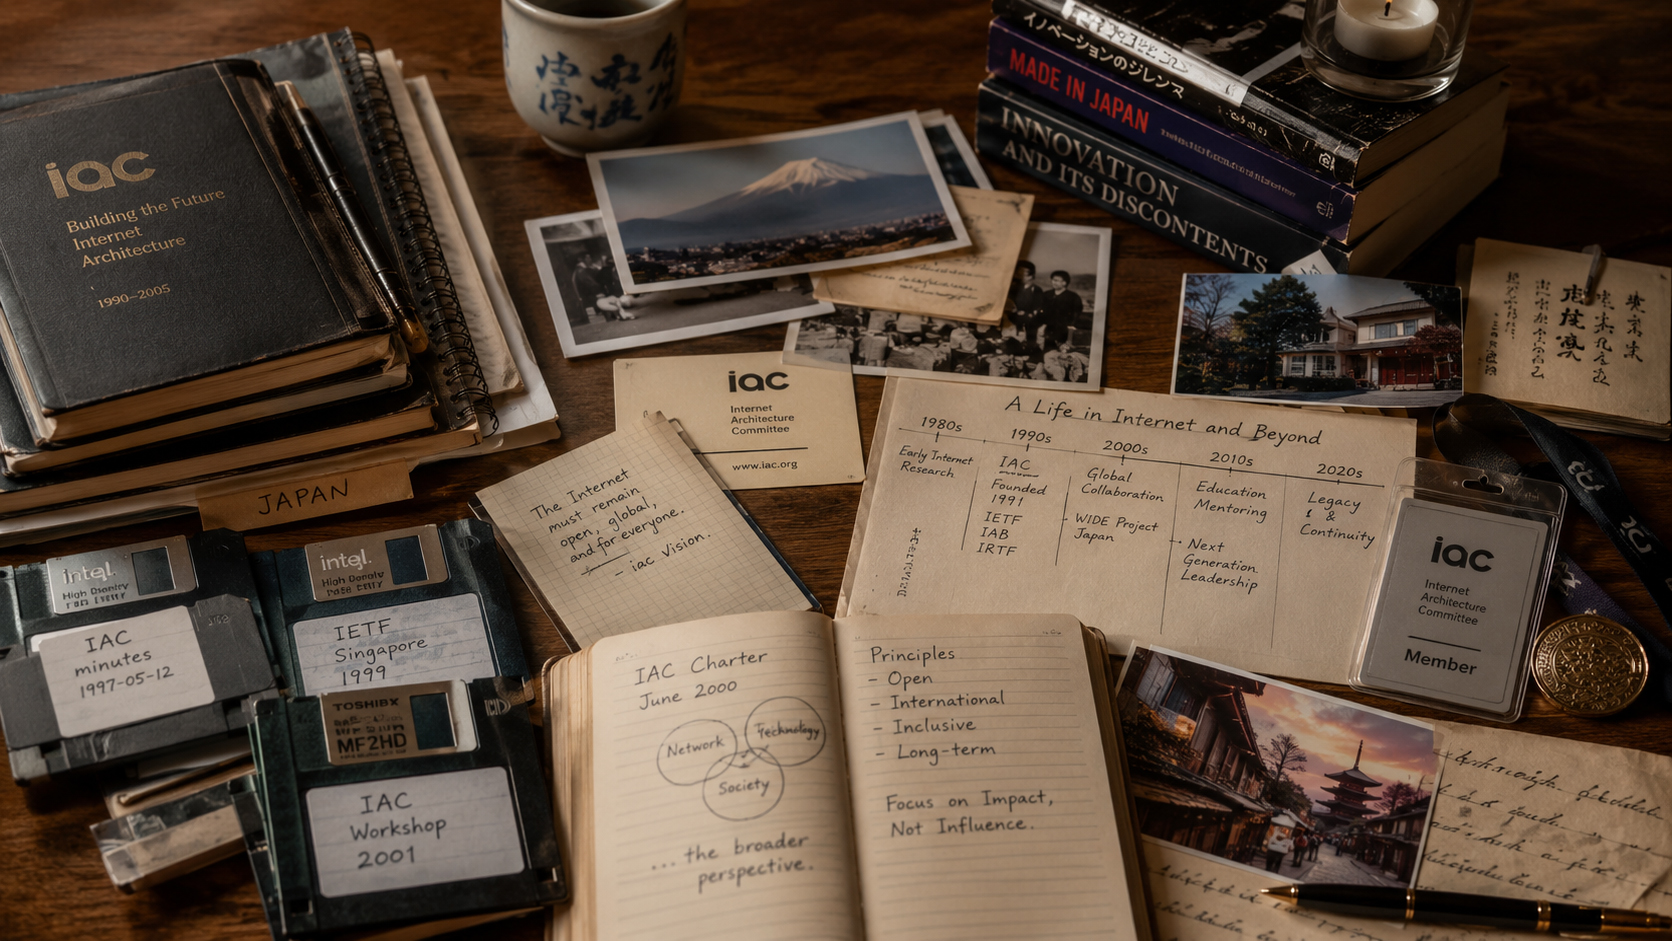 iac
Building the Future
Internet
Architecture
1990–2005
JAPAN
intel.
High Density
IAC
minutes
1997-05-12
intel.
High Density
IETF
Singapore
1999
TOSHIBX
MF2HD
IAC
Workshop
2001
イノベーションのジレンス
MADE IN JAPAN
INNOVATION
AND ITS DISCONTENTS
iac
Internet
Architecture
Committee
www.iac.org
The Internet
must remain
open, global,
and for everyone.
– iac Vision.
A Life in Internet and Beyond
1980s
Early Internet
Research
1990s
IAC
Founded
1991
IETF
IAB
IRTF
2000s
Global
Collaboration
- WIDE Project
Japan
2010s
Education
Mentoring
- Next
Generation
Leadership
2020s
Legacy
&
Continuity
iac
Internet
Architecture
Committee
Member
IAC Charter
June 2000
Network
Technology
Society
... the broader
perspective.
Principles
- Open
- International
- Inclusive
- Long-term
Focus on Impact,
Not Influence.